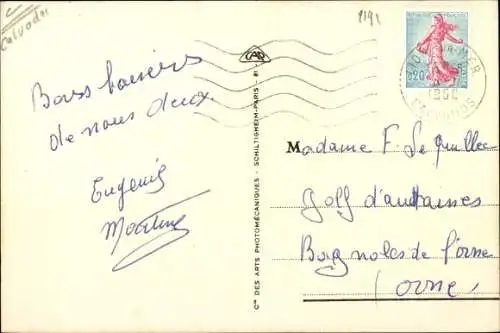 Calvados
1191
Bons baisers
de nous deux.
Eugenie
Martine
Cie DES ARTS PHOTOMÉCANIQUES - SCHILTIGHEIM-PARIS - 81
CAP
0,20
CALVADOS
Madame F. Le Quillec
Golf d'andaines
Bagnoles de l'orne
(orne)